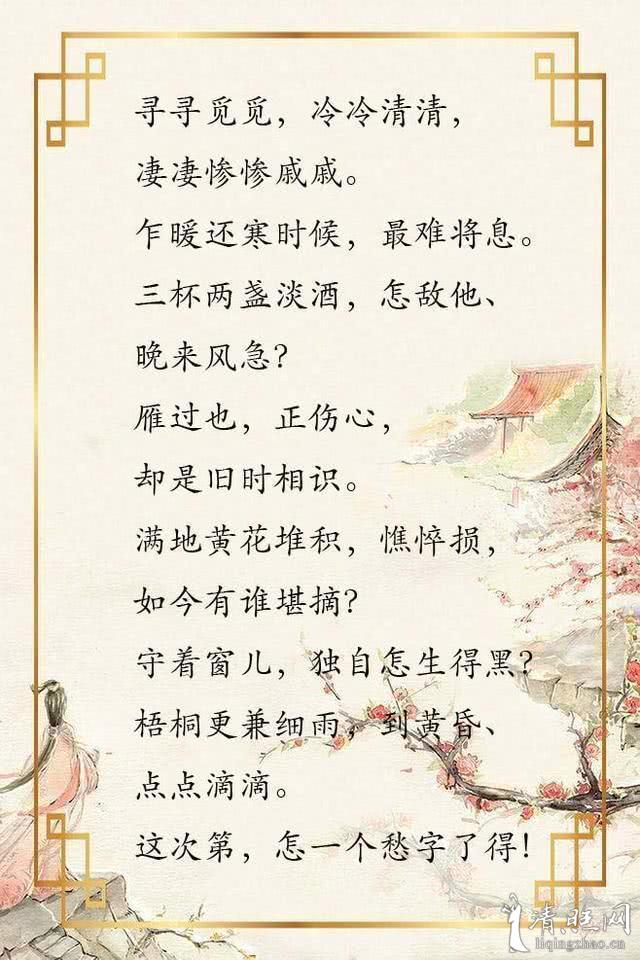 寻寻觅觅，冷冷清清，
凄凄惨惨戚戚。
乍暖还寒时候，最难将息。
三杯两盏淡酒，怎敌他、
晚来风急?
雁过也，正伤心，
却是旧时相识。
满地黄花堆积，憔悴损，
如今有谁堪摘?
守着窗儿，独自怎生得黑?
梧桐更兼细雨，到黄昏、
点点滴滴。
这次第，怎一个愁字了得!
清旺网
liqingzhao.cn